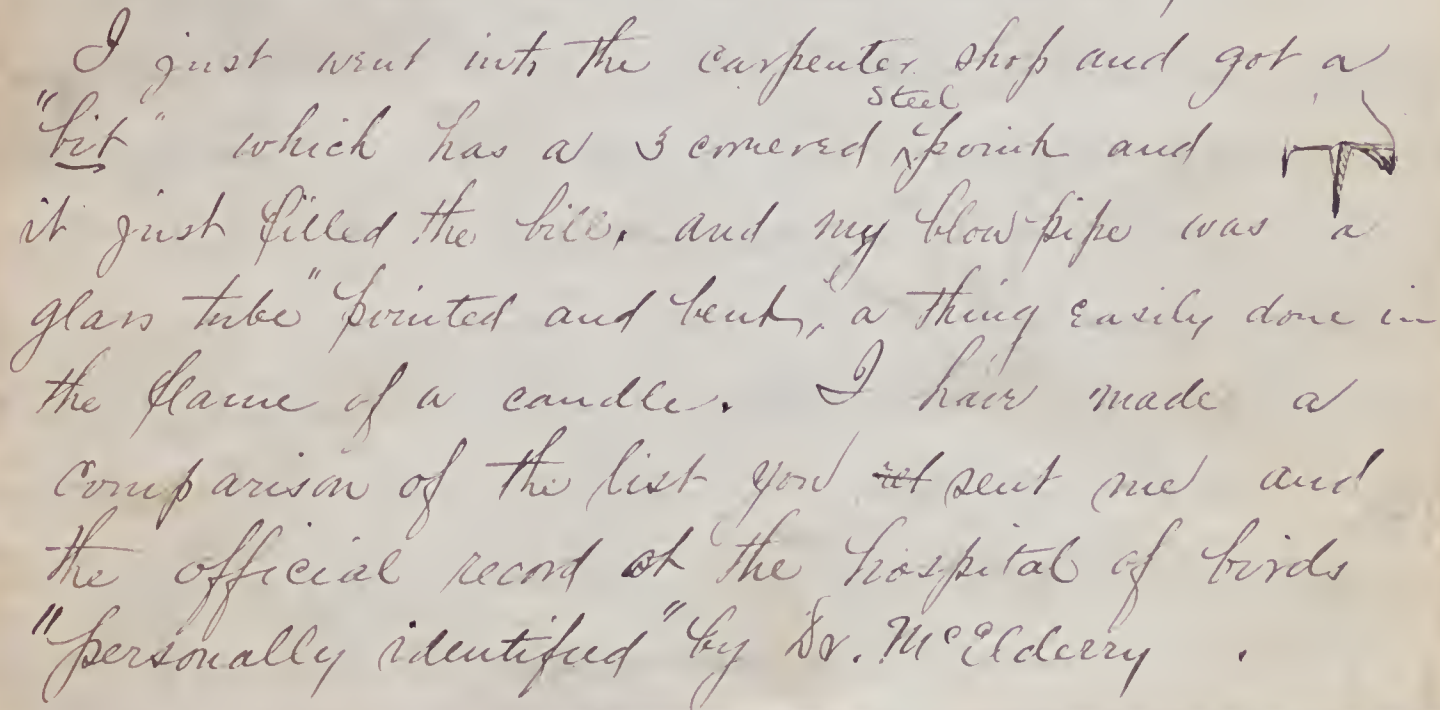 I just went into the carpenter shop and got a
"bit" which has a 3 cornered steel point and
it just filled the bill, and my blow pipe was a
glass tube "pointed and bent," a thing easily done in
the flame of a candle. I have made a
comparison of the list you ret sent me and
the official record at the hospital of birds
"personally identified" by Dr. McElderry .